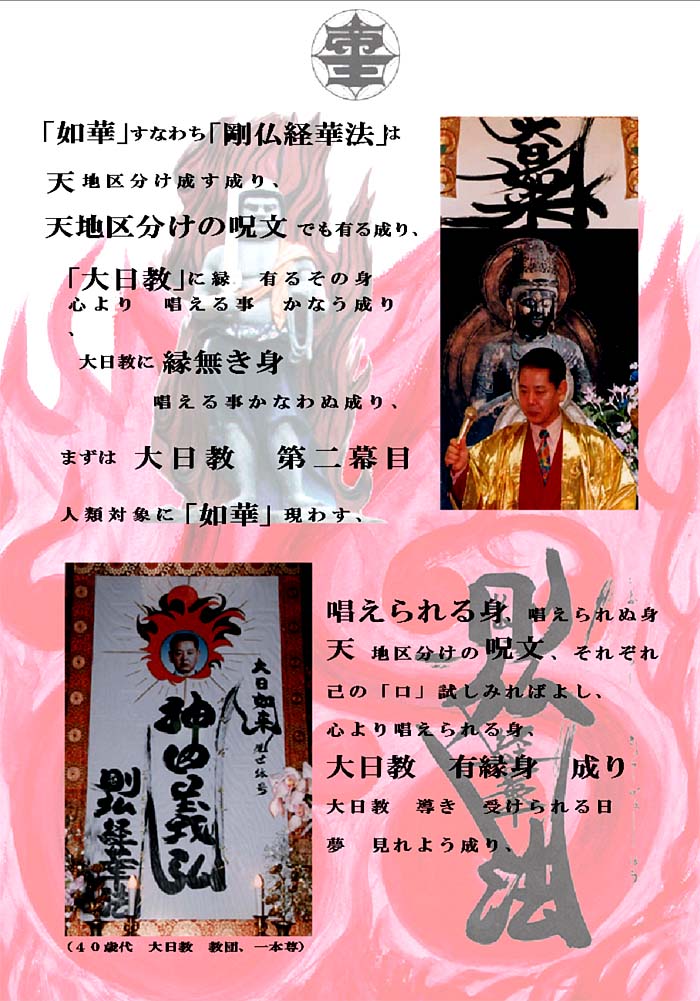 「如華」すなわち「剛仏経華法」は
天 地区分け成す成り、
天地区分けの呪文 でも有る成り、
「大日教」に縁　有るその身
心より　唱える事　かなう成り
、
大日教に 縁無き身
唱える事かなわぬ成り、
まずは　大日教　第二幕目
人類対象に「如華」現わす、
唱えられる身、唱えられぬ身
天　地区分けの 呪文、それぞれ
己の「口」試しみればよし、
心より唱えられる身、
大日教　有縁身　成り
大日教　導き　受けられる日
夢　見れよう成り、
大日如来
大日如来
神田義弘
剛仏経華法
（４０歳代　大日教　教団、一本尊）